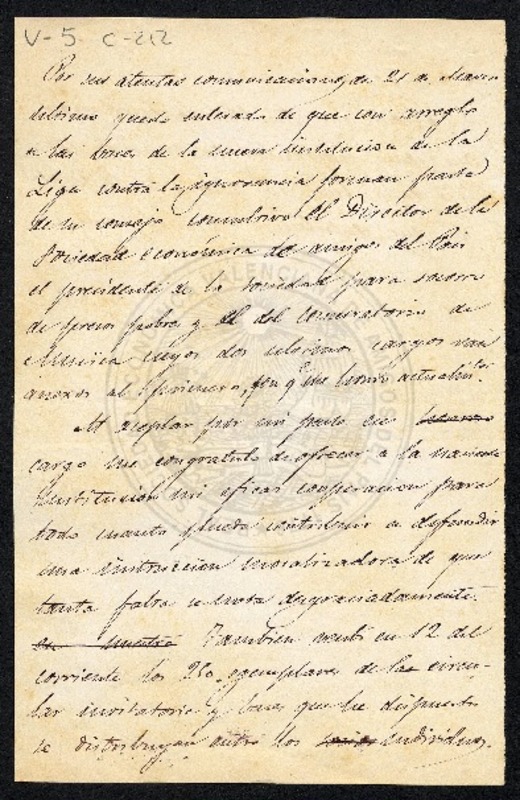 V-5 C-212
Por sus atentas comunicaciones, de 21 de Marzo
último quedo enterado de que con arreglo
a las bases de la nueva institucion de la
Liga contra la ignorancia forman parte
de su consejo consultivo el Director de la
Sociedad económica de amigos del Pais
el presidente de la sociedad para socorro
de presos pobres y el del Conservatorio de
Música cuyos dos ultimos cargos van
anexos al primero, con q. me honro actualm.te
Al aceptar por mi parte ese
cargo me congratulo de ofrecer a la naciente
institucion mi eficaz cooperacion para
todo cuanto pueda contribuir a difundir
una instruccion moralizadora de que
tanta falta se nota desgraciadamente.
Tambien recibí en 12 del
corriente los 250 ejemplares de la circu-
lar invitatoria y bases que he dispuesto
se distribuyan entre los individuos.